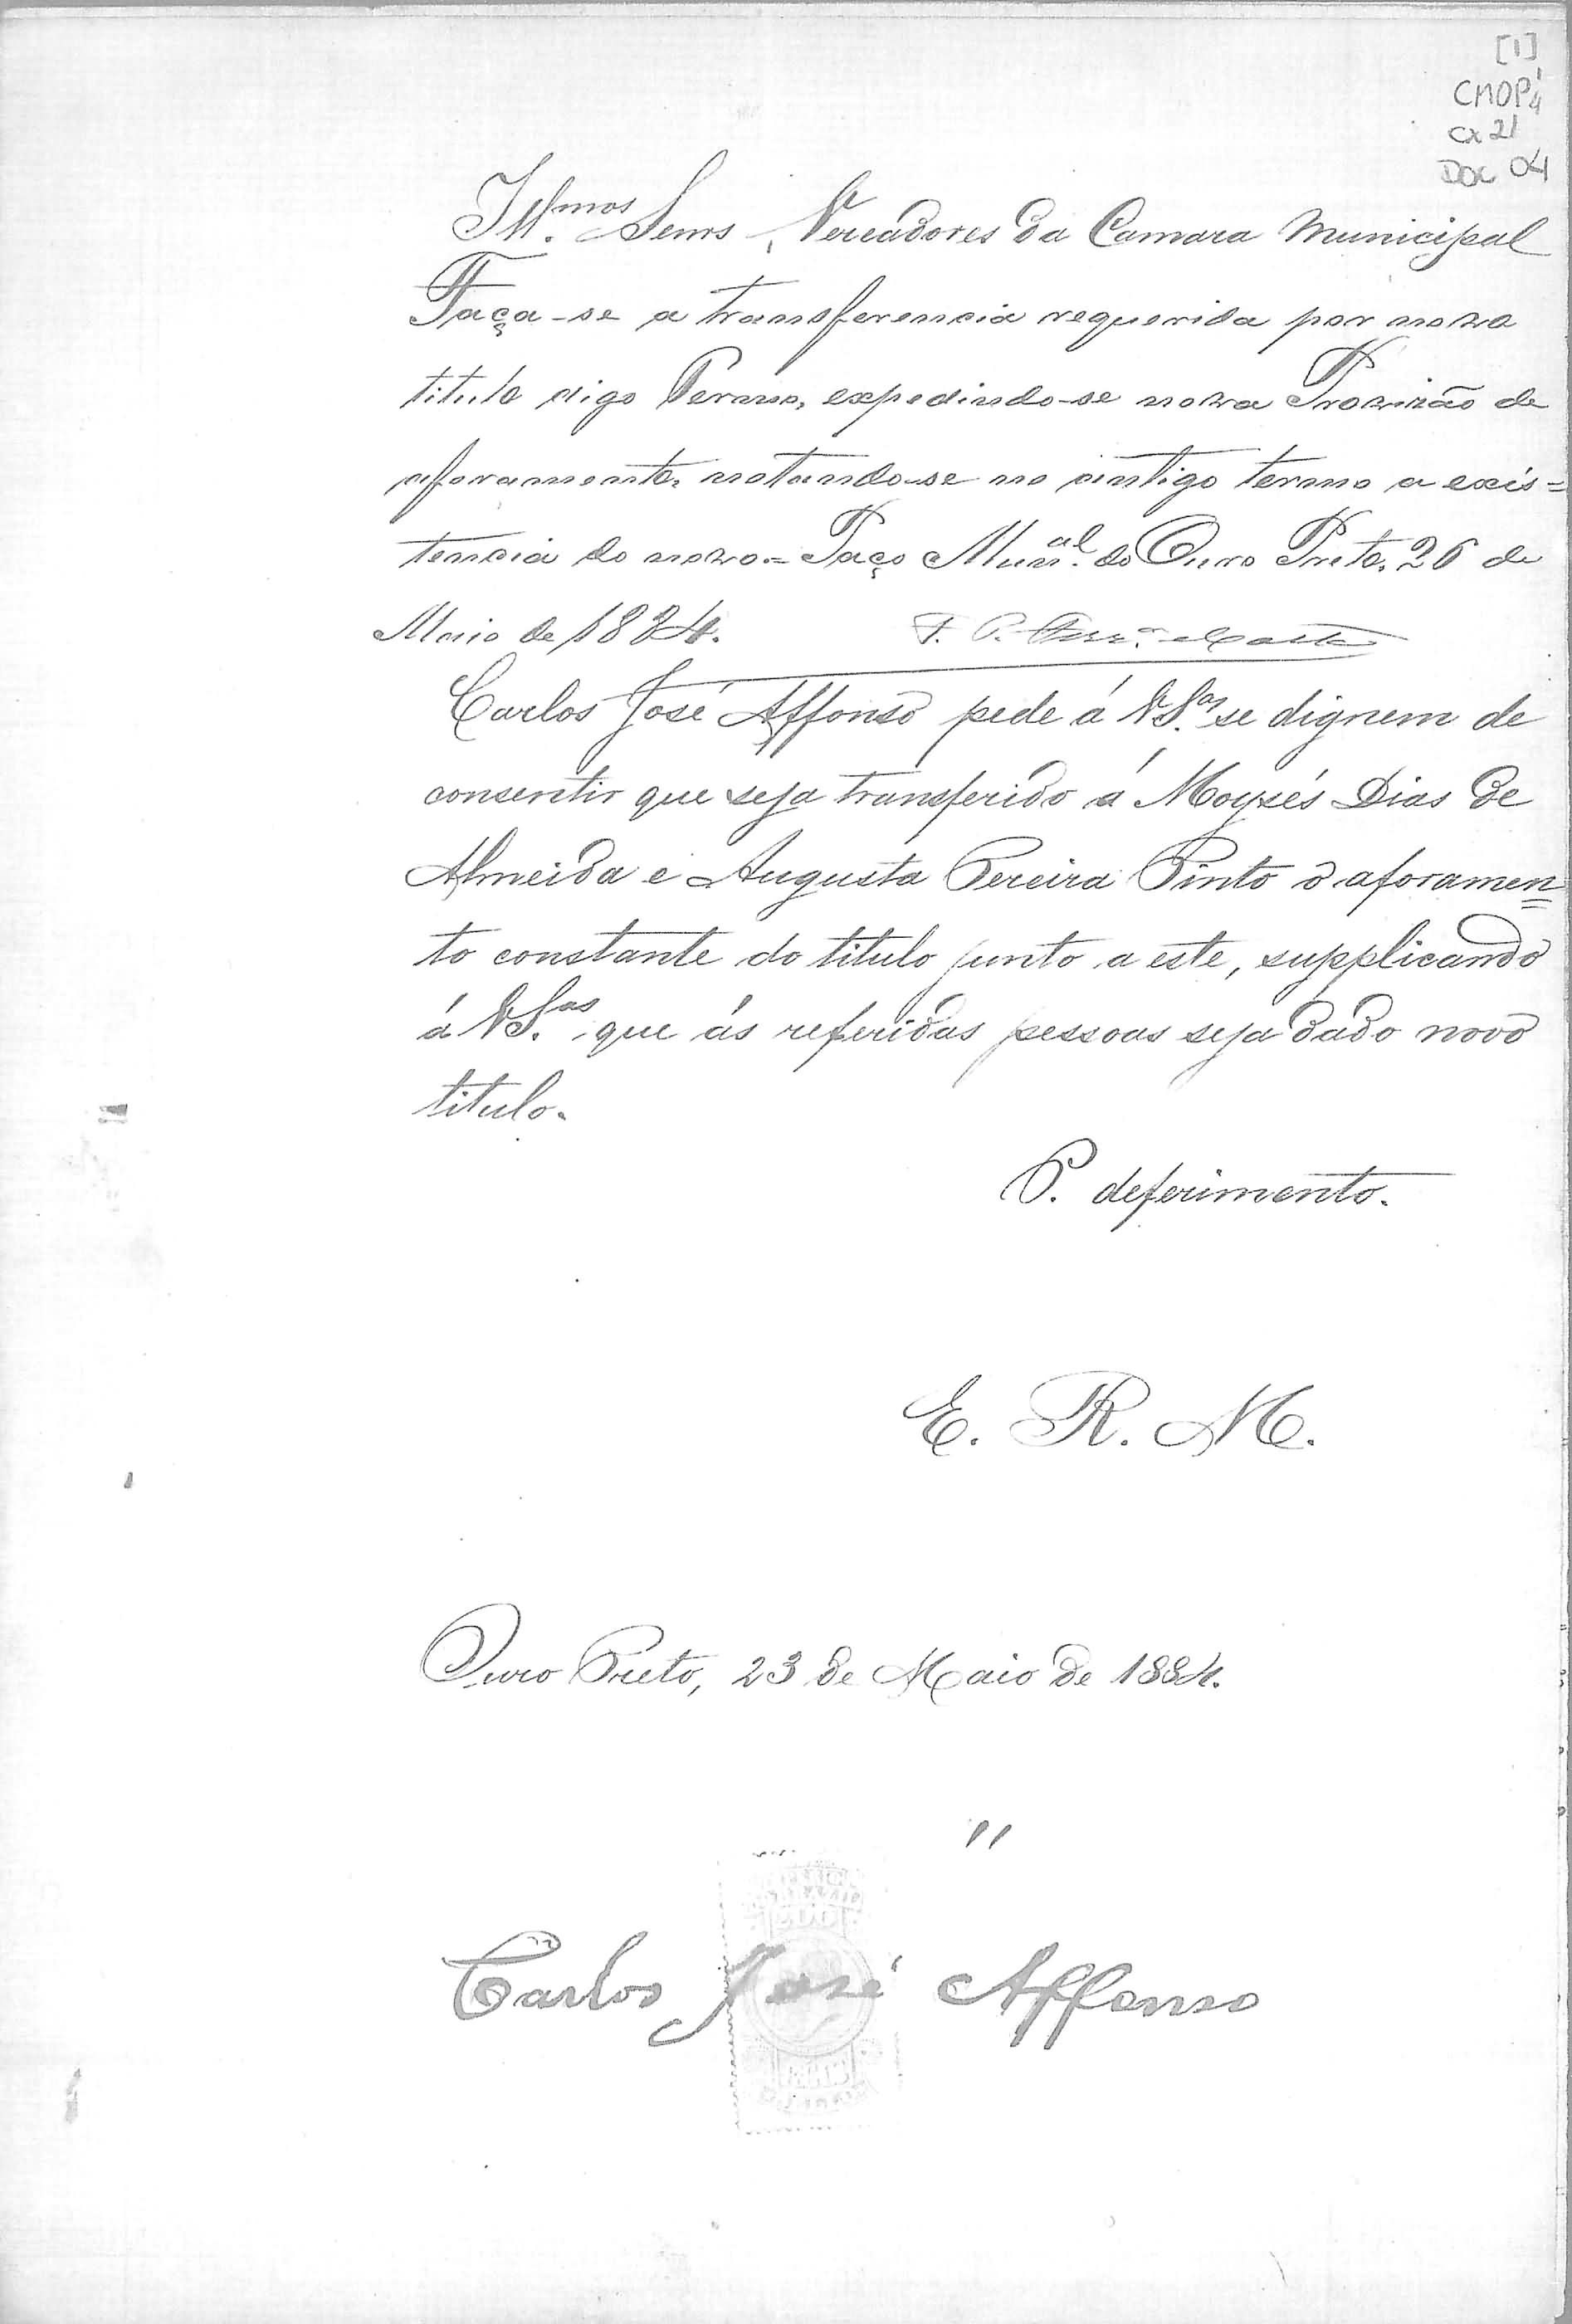 [1]
CMOP 1/4
CX 21
DOC 04
Ill.mos Senrs Vereadores da Camara Municipal
Faça-se a transferencia requerida por novo
titulo digo Termo, expedindo-se nova Provizão de
aforamento, notando-se no antigo termo a exis=
tencia do novo.= Paço Mun.al do Ouro Preto, 26 de
Maio de 1884. F. P.
Carlos José Affonso pede á VS.as se dignem de
consentir que seja transferido á Moysés Dias de
Almeida e Augusta Pereira Pinto o aforamen=
to constante do titulo junto a este, supplicando
á VS.as que ás referidas pessoas seja dado novo
titulo.
P. deferimento.
E. R. M.
Ouro Preto, 23 de Maio de 1884.
"
Carlos José Affonso